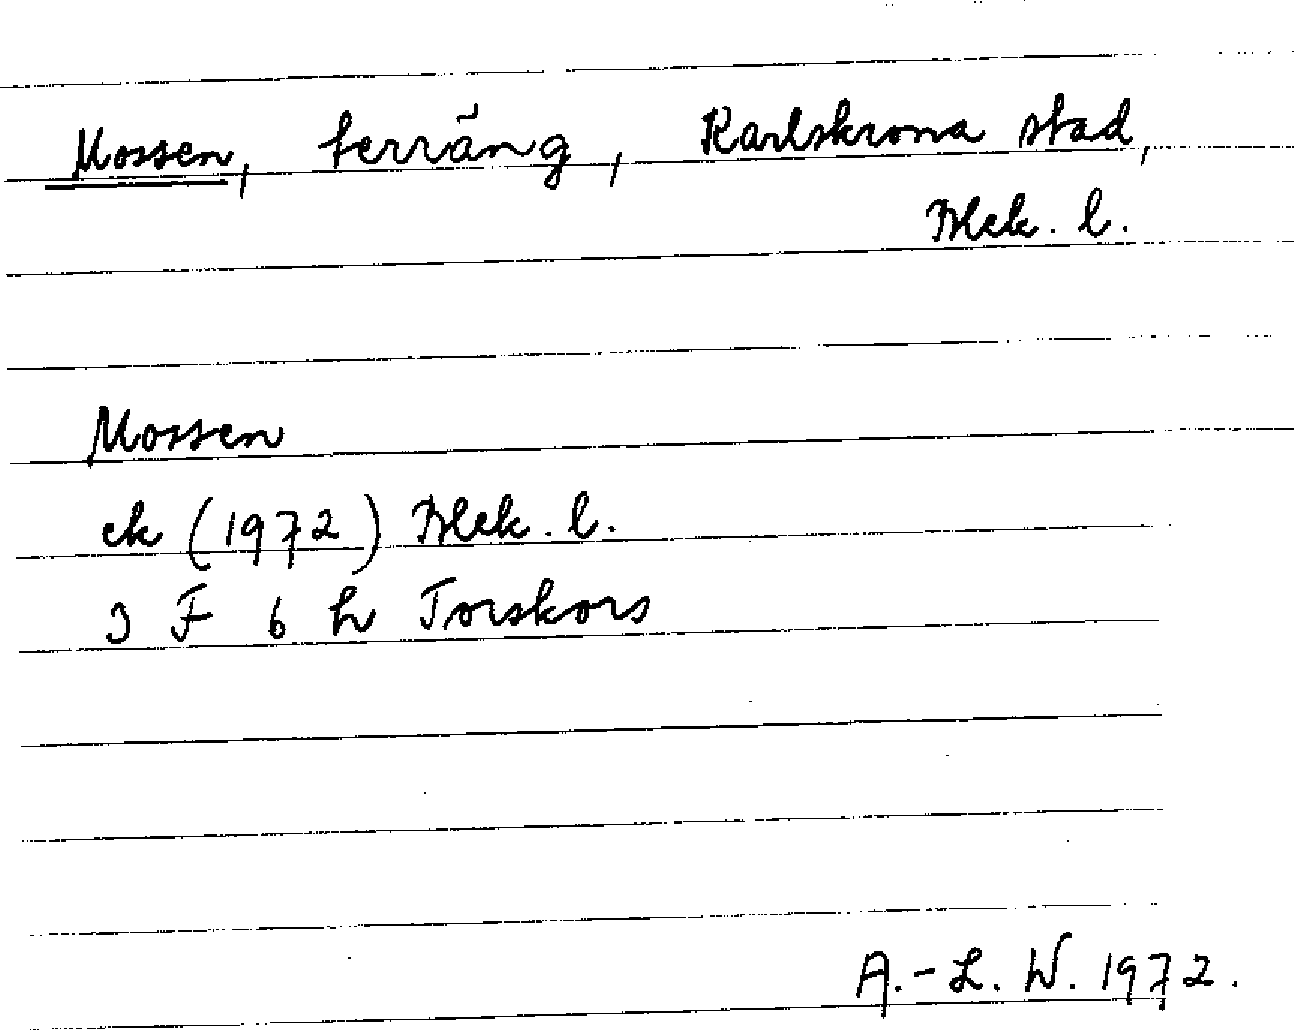 Mossen, terräng, Karlskrona stad,
Blek. l.
Mossen
ek (1972) Blek. l.
3 F 6 h Torskors
A.-L. W. 1972.